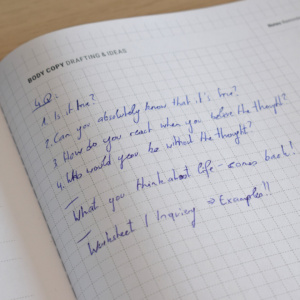 BODY COPY DRAFTING & IDEAS
4Q:
1. Is it true?
2. Can you absolutely know that it's true?
3. How do you react when you believe the thought?
4. Who would you be without the thought?
What you think about life - comes back!
Worksheet / Inquiry => Examples!!